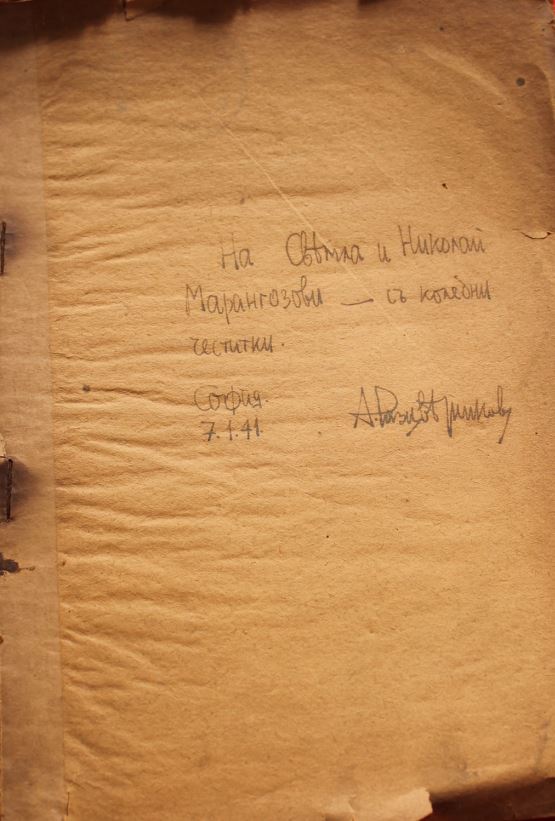 На Свѣтла и Николай
Марангозови — съ коледни
честитки.
София.
7.1.41.
А. Разцвѣтниковъ